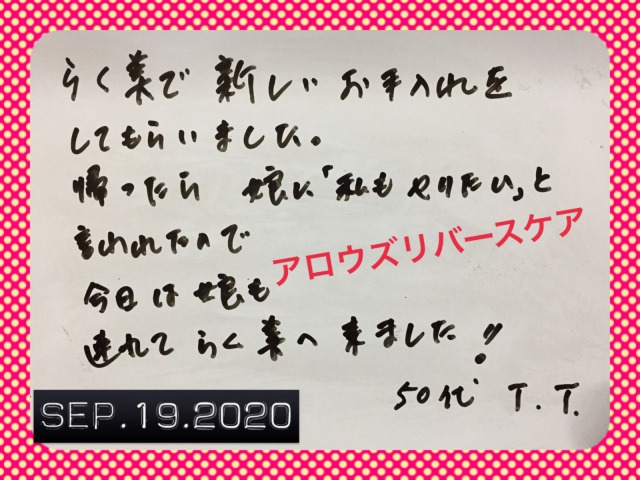 らく葉で 新しい お手入れを
してもらいました。
帰ったら 娘に「私も やりたい」と
言われたので
アロウズリバースケア
今日は 娘も
連れて らく葉へ 来ました!!
50代 T.T.
SEP.19.2020